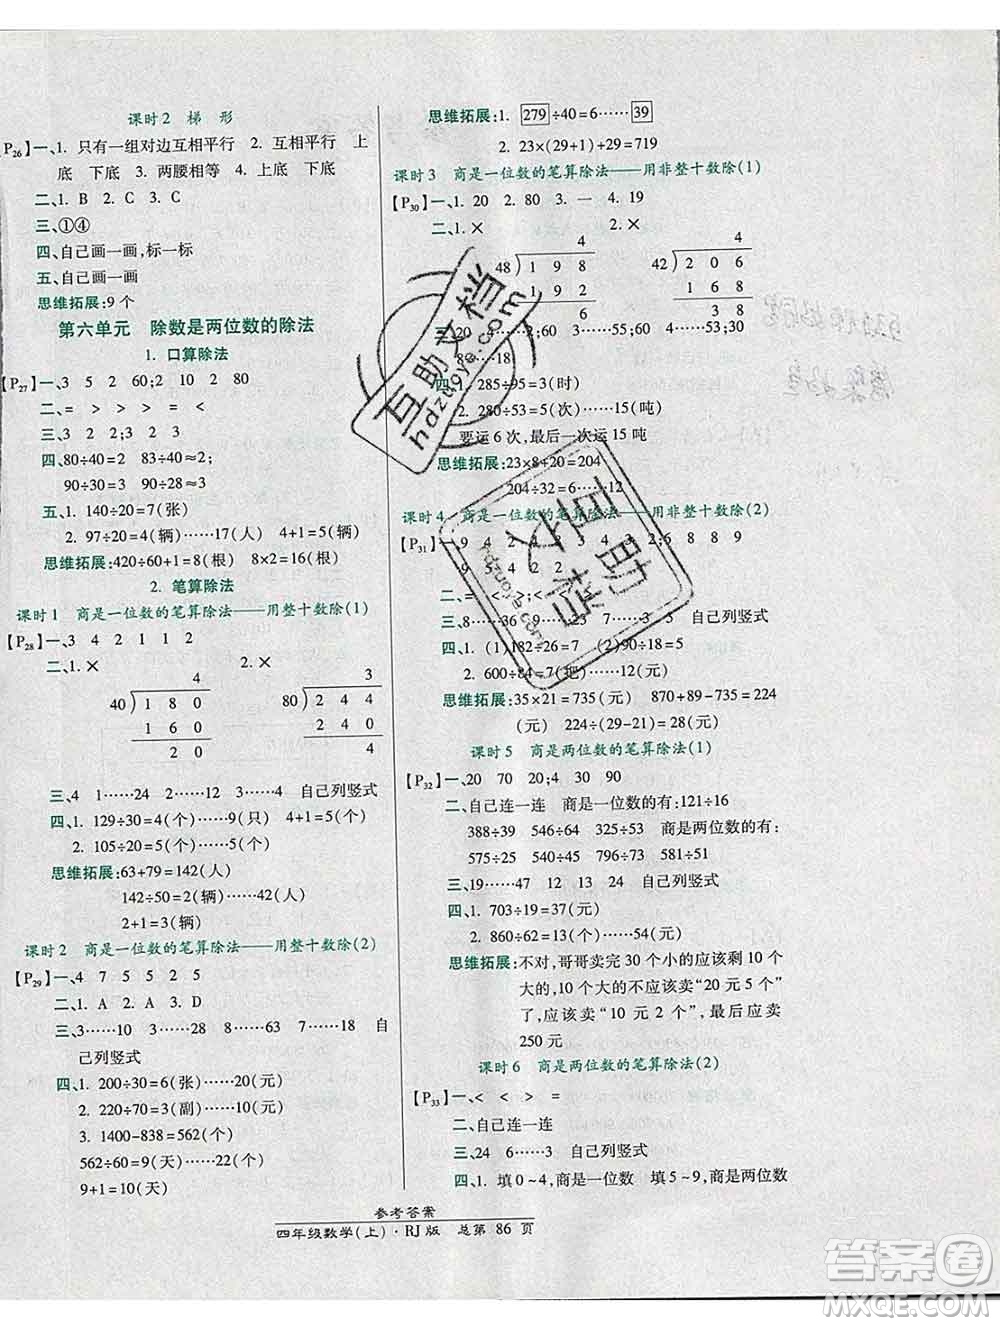 课时2 梯 形
【P26】一、1. 只有一组对边互相平行 2. 互相平行 上
底 下底 3. 两腰相等 4. 上底 下底
二、1. B 2. C 3. C
三、①④
四、自己画一画,标一标
五、自己画一画
思维拓展:9 个
第六单元 除数是两位数的除法
1. 口算除法
【P27】一、3 5 2 60;2 10 2 80
二、= > > > = >
三、3 2;2 3;2 3
四、80÷40=2 83÷40≈2;
90÷30=3 90÷28≈3
五、1. 140÷20=7(张)
2. 97÷20=4(辆)……17(人) 4+1=5(辆)
思维拓展:420÷60+1=8(根) 8×2=16(根)
2. 笔算除法
课时1 商是一位数的笔算除法——用整十数除(1)
【P28】一、3 4 2 1 1 2
二、1. × 2. ×
4 3
40)180 80)244
160 240
20 4
三、4 1……24 2……12 3……4 自己列竖式
四、1. 129÷30=4(个)……9(只) 4+1=5(个)
2. 105÷20=5(个)……5(个)
思维拓展:63+79=142(人)
142÷50=2(辆)……42(人)
2+1=3(辆)
课时2 商是一位数的笔算除法——用整十数除(2)
【P29】一、4 7 5 5 2 5
二、1. A 2. A 3. D
三、3……10 3……28 8……63 7……18 自
己列竖式
四、1. 200÷30=6(张)……20(元)
2. 220÷70=3(副)……10(元)
3. 1400-838=562(个)
562÷60=9(天)……22(个)
9+1=10(天)
思维拓展:1. 279÷40=6……39
2. 23×(29+1)+29=719
课时3 商是一位数的笔算除法——用非整十数除(1)
【P30】一、1. 20 2. 80 3. 一 4. 19
二、1. × 2. ×
4 4
48)198 42)206
192 168
6 38
三、20
60;30 4……37
8……18.
四、1. 285÷95=3(时)
2. 280÷53=5(次)……15(吨)
要运 6 次,最后一次运 15 吨
思维拓展:23×8+20=204
204÷32=6……12
课时4 商是一位数的笔算除法——用非整十数除(2)
【P31】一、9 4 2
3 2;6 8 8 9
二、= <
三、8……36 9……23 7……3 5 自己列竖式
四、1. (1)182÷26=7(元) (2)90÷18=5(元)
2. 600÷84=7(把)……12(元)
思维拓展:35×21=735(元) 870+89-735=224
(元) 224÷(29-21)=28(元)
课时5 商是两位数的笔算除法(1)
【P32】一、20 70 20;4 30 90
二、自己连一连 商是一位数的有:121÷16
388÷39 546÷64 325÷53 商是两位数的有:
575÷25 540÷45 784÷31
三、19……47 12 13 24 自己列竖式
四、1. 703÷19=37(元)
2. 860÷62=13(个)……54(元)
思维拓展:不对,哥哥卖完 30 个小的应该剩 10 个
大的,10 个大的不应该卖“20 元 5 个”
了,应该卖“10 元 2 个”,最后应卖
250 元
课时6 商是两位数的笔算除法(2)
【P33】一、< < > =
二、自己连一连
三、24 6……3 自己列竖式
四、1. 填0~4,商是一位数 填5~9,商是两位数
参考答案
四年级数学(上)·RJ版 总第 86 页
互助文档
hdzuoye.com
互助
文档
hdzuoye.com
答案圈
MXQE.COM